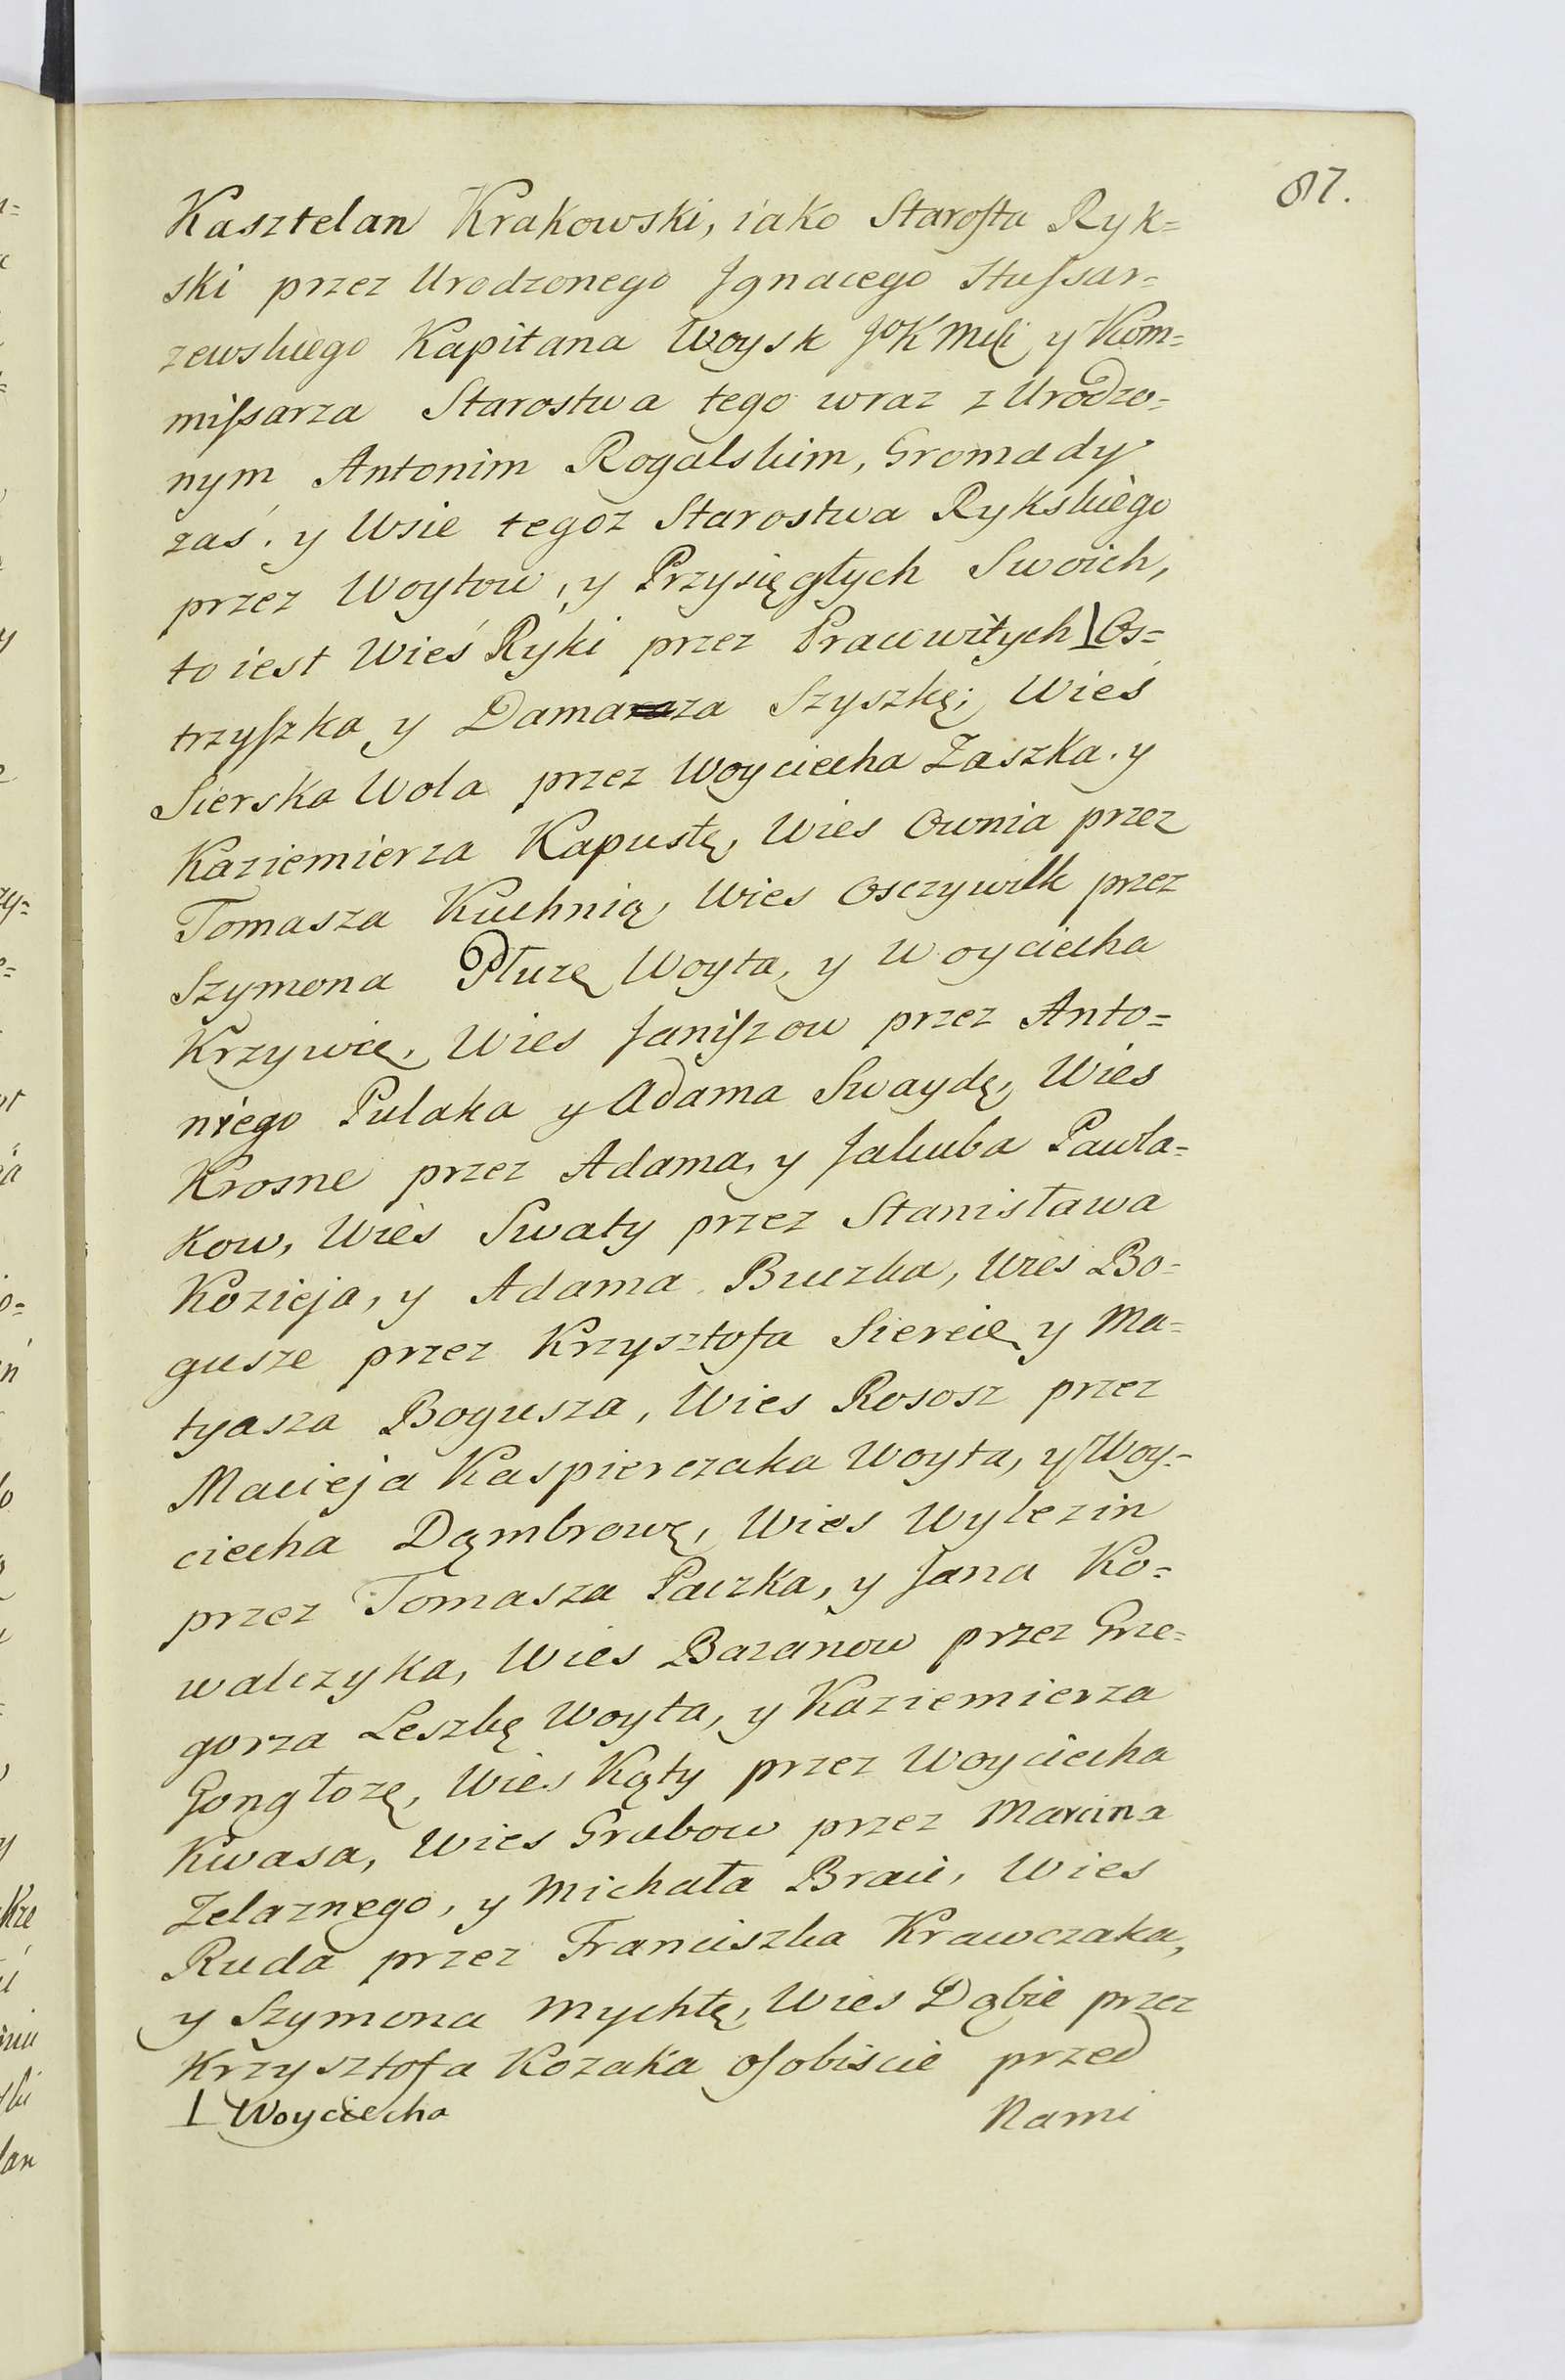 87.
Kasztelan Krakowski, iako Starosta Ryk=
ski przez Urodzonego Ignacego Hussar=
zewskiego Kapitana Woysk JoK Mći y Kom=
missarza Starostwa tego wraz z Urodzo=
nym Antonim Rogalskim, Gromady
zaś. y Wsie tegoz Starostwa Rykskiego
przez Woytow, y Przysięgłych Swoich,
to iest Wieś Ryki przez Pracowitych ⊥ Os=
trzyszka y Damaza Szyszkę; Wieś
Sierska Wola przez Woyciecha Zaszka. y
Kaziemierza Kapustę, Wies Ownia przez
Tomasza Kuchnią, Wies Osczywilk przez
Szymona Płuzę Woyta, y Woyciecha
Krzywcę, Wies Janiszow przez Anto=
niego Pulaka y Adama Swaydę, Wies
Krosne przez Adama, y Jakuba Pawla=
kow, Wies Swaty przez Stanisława
Kozieja, y Adama Buczka, Wies Bo=
gusze przez Krzysztofa Siercię y Ma=
tyasza Bogusza, Wies Rososz przez
Macieja Kaspierczaka Woyta, y Woy=
ciecha Dąmbrowę, Wies Wylezin
przez Tomasza Paczka, y Jana Ko=
walczyka, Wies Bazanow przez Grze=
gorza Leszkę Woyta, y Kaziemierza
Gongłozę, Wies Kąty przez Woyciecha
Kwasa, Wies Grabow przez Marcina
Zelaznego, y Michała Braci, Wies
Ruda przez Franciszka Krawczaka,
y Szymona Mychtę, Wies Dąbie przez
Krzysztofa Kozaka osobiscie przed
⊥ Woyciecha
Nami